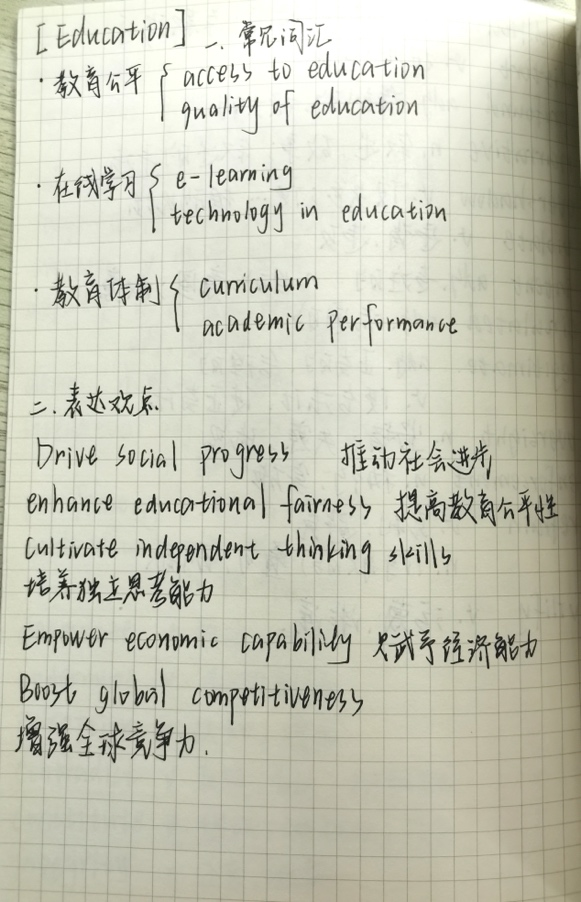 [Education] 一、常见词汇
· 教育公平 { access to education
quality of education
· 在线学习 { e-learning
technology in education
· 教育体制 { curriculum
academic performance
二、表达观点
Drive social progress 推动社会进步
enhance educational fairness 提高教育公平性
Cultivate independent thinking skills
培养独立思考能力
Empower economic capability 赋予经济能力
Boost global competitiveness
增强全球竞争力.